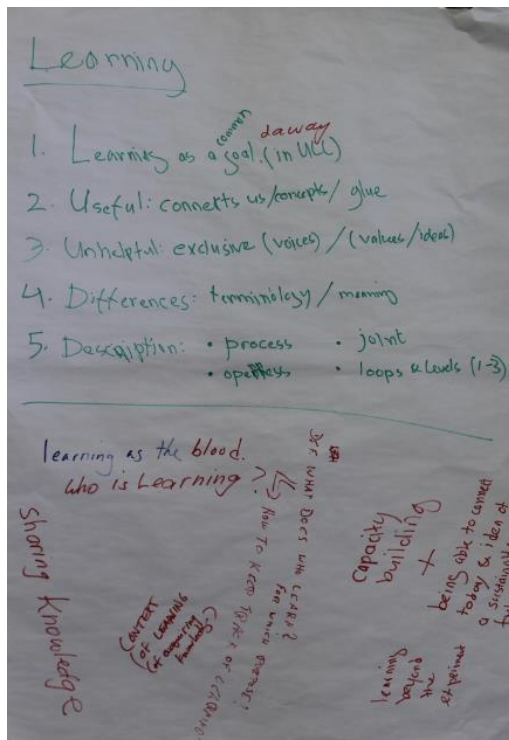 Learning
1. Learning as a common goal. (in ULL)
daway
2. Useful: connects us/concepts/ glue
3. Unhelpful: exclusive (voices) / (values/ideas)
4. Differences: terminology / meaning
5. Description: • process • joint
• openness • loops & levels (1-3)
learning as the blood.
who is Learning?
Sharing Knowledge
CONTEXT
(OF LEARNING
(of acquiring
knowledge)
HOW TO KEEP TRACK OF LEARNING
WHAT DOES WHO LEARN?
FOR WHICH PURPOSE?
capacity
building
+
being able to connect
today & idea of
a sustainable
learning
beyond
the
experiment